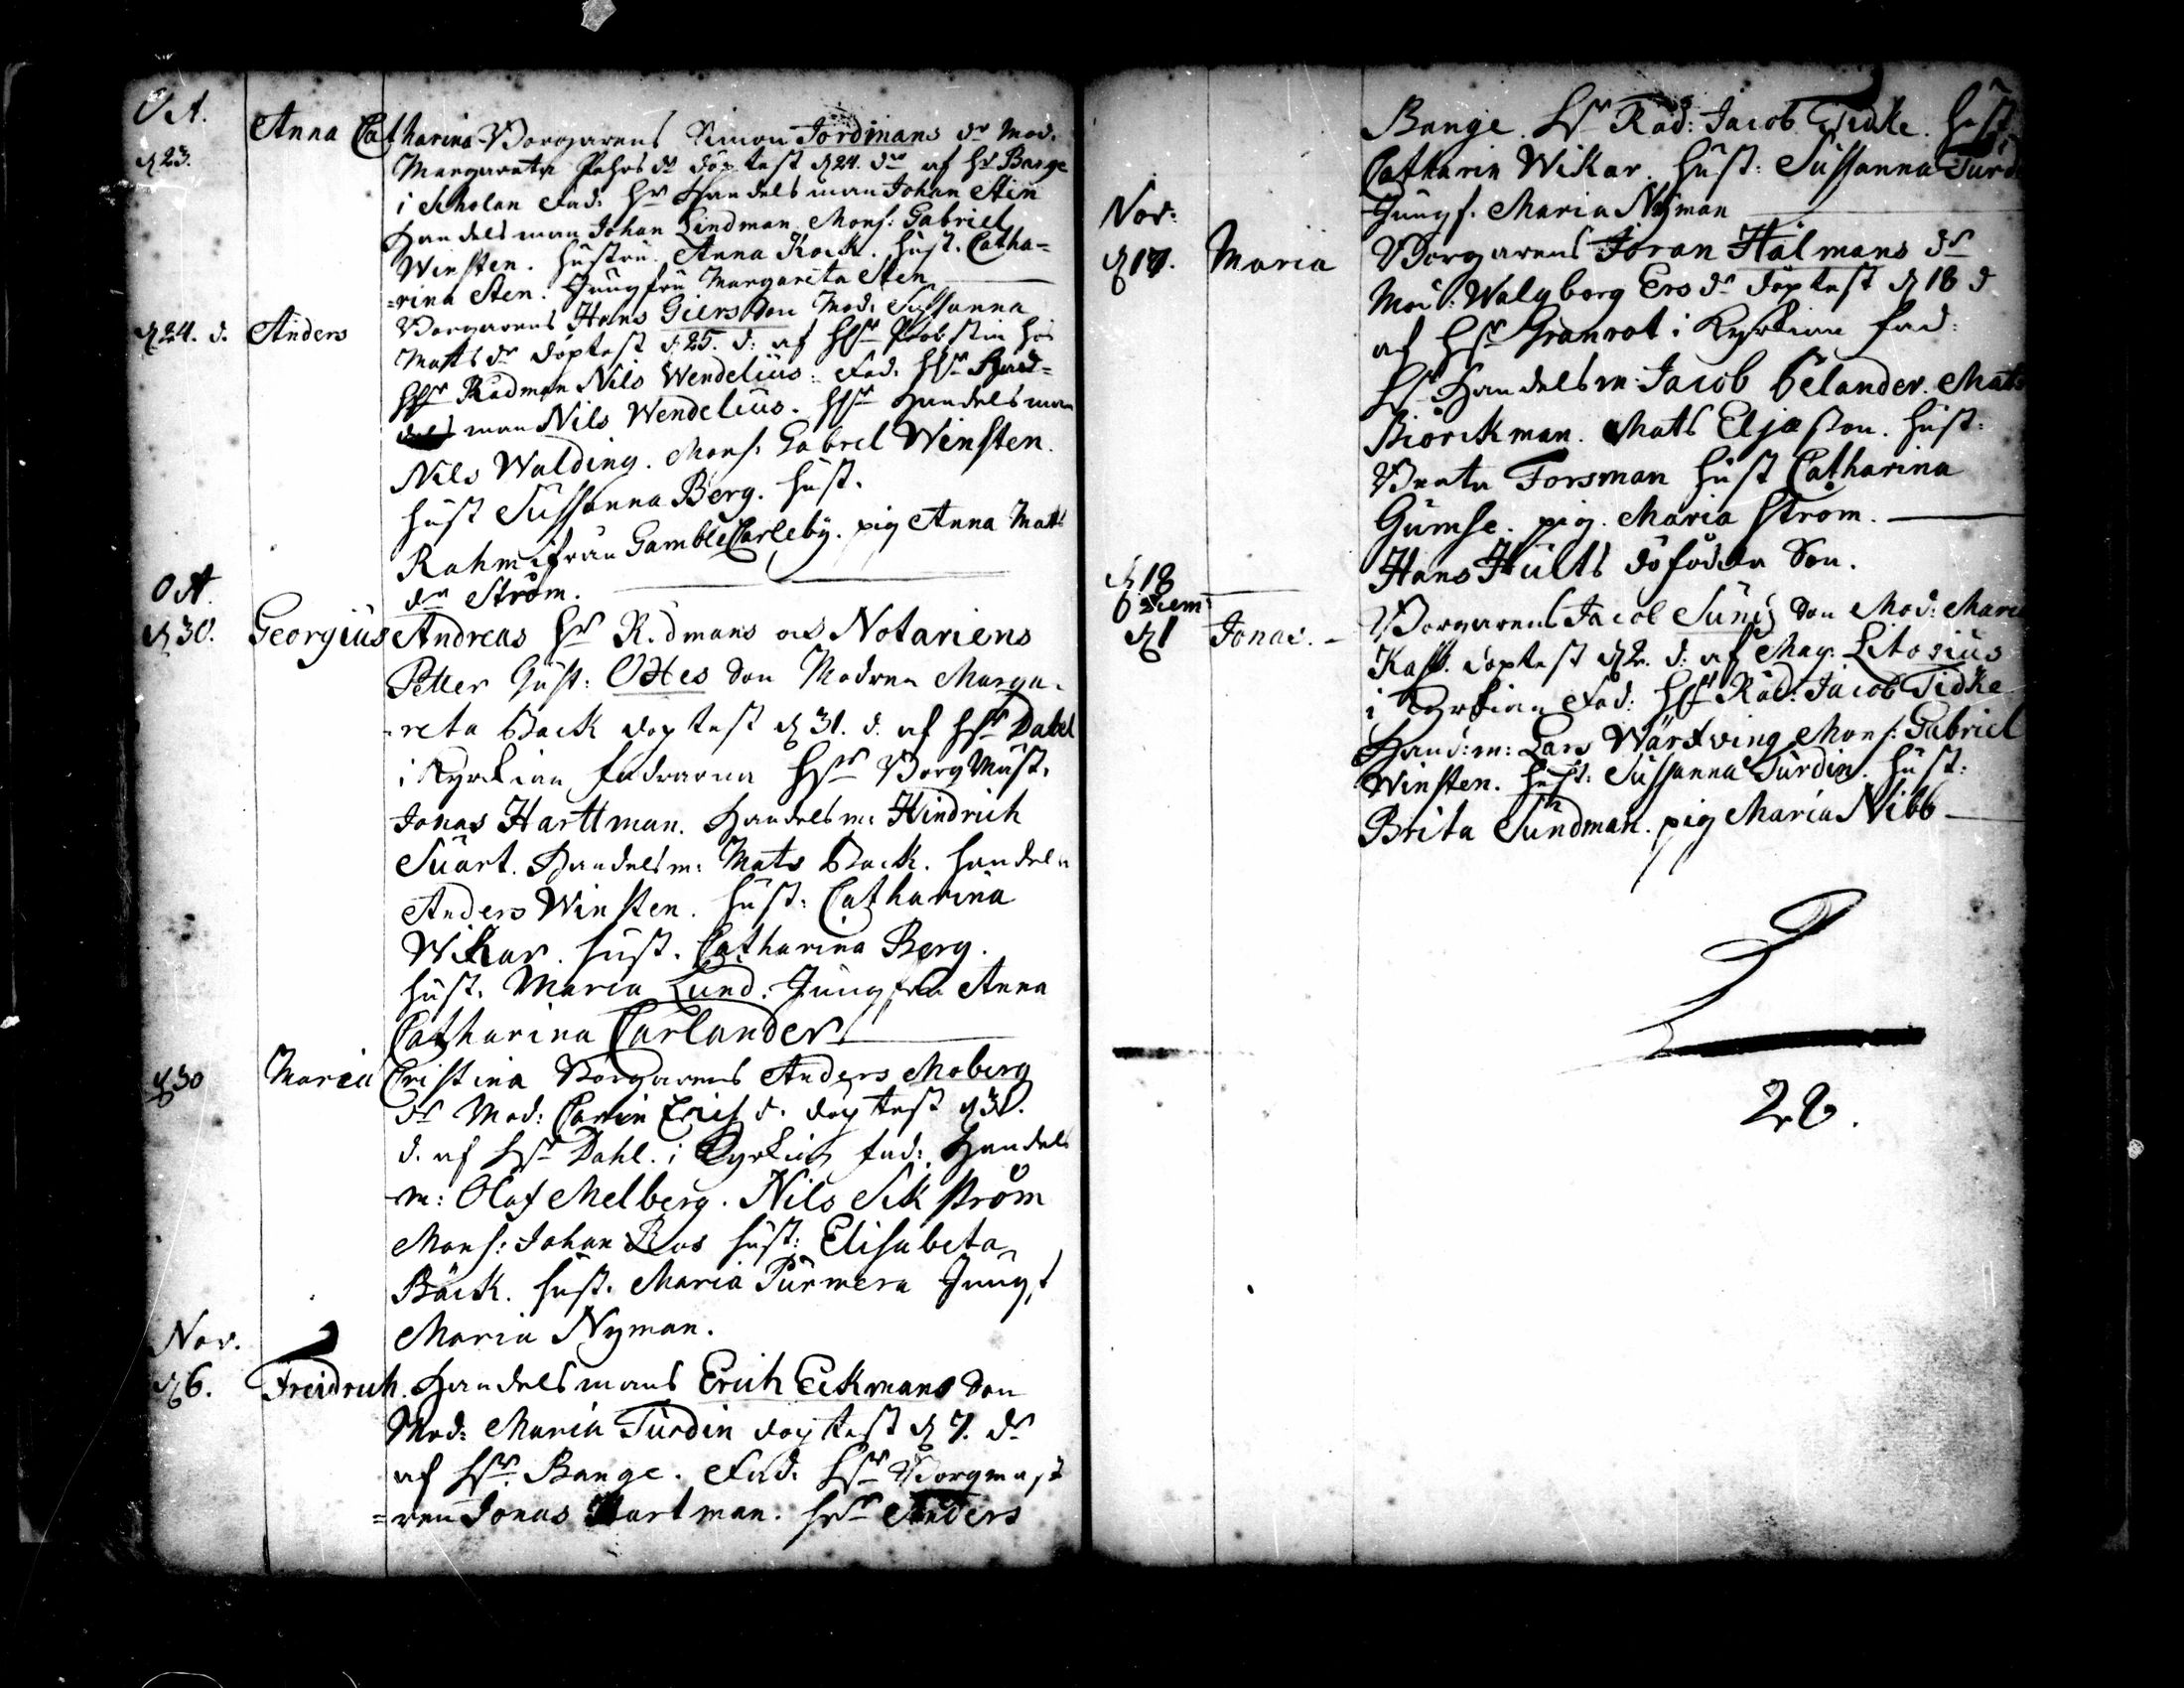 Oct.
d 23. Anna Catharina Borgarens Simon Jordmans dr Mod.
Margareta Pehrs dr döptest d 24. dr af Hr Bange
i Scholan Fad. Hr Handelsman Johan Sten
Handelsman Johan Lindman. Mons: Gabriel
Winsten. hustru. Anna Kock. hust. Catha=
=rina Sten. Jungfru Margareta Sten
d 24. d. Anders Borgarens Hans Giers Son Mod. Sussanna
Matts dr döptest d. 25. d: af Hr Probstin hos
Hr Rådman Nils Wendelius. Fad. Hr
man Nils Wendelius. Hr Handelsman
Nils Walding. Mons. Gabrel Winsten.
hust Sussanna Berg. hust.
Rahm ifrån Gamble Carleby. pig Anna Matts
dr Ström.
Oct.
d 30. Georgius Andreas Hr Rådmans och Notariens
Petter Gust: Ottes Son Modren Marga-
-reta Back döptest d 31. d. af Hr Dahl
i Kyrkian fadrarna Hr BorgMäst.
Jonas Harttman. Handelsm: Hindrich
Suart. Handelsm: Mats Back. handelsm
Anders Winsten. hust: Catharina
Wikar. hust. Catharina Berg.
hust. Maria Lund. Jungfru Anna
Catharina Carlander
d 30 Maria Cristina Borgarens Anders Moberg
dr Mod: Carin Erichs d. döptest d 31.
d. af Hr Dahl. i Kyrkian fad. Handels
m: Olof Melberg. Nils Sikström
Mons: Johan Ros hust: Elisabeta
Bäck. hust. Maria Purmera Jungf
Maria Nyman.
Nov.
d 6. Freidrich. Handelsmans Erich Eckmans Son
Mod: Maria Turdin döptest d 7. dr
af Hr Bange. Fad. Hr Borgmäst
=ren Jonas Hartman. Hr Anders
Bange. Hr Råd: Jacob Tidke. hust
Catharin Wikar. hust: Sussanna Turdin
Jungf. Maria Nyman
Nov:
d 17. Maria Borgarens Jöran Hälmans dr
Mod: Walgborg Ers dr döptest d 18 d
af Hr Granrot i Kyrkian fad:
Hr Handelsm: Jacob Celander. Mats
Biörckman. Mats Eljæ Son. hust:
Beata Forsman hust Catharina
Gumse. pig. Maria Ström.
d 18 Hans Hults döfödda Son.
Decem:
d 1 Jonas. Borgarens Jacob Sunis Son Mod: Maria
Kass. döptest d 2. d: af Mag: Litovius
i Kyrkian Fad: Hr Råd: Jacob Tidke
Hand:m: Lars Wärfving Mons: Gabriel
Winsten. hust: Sussanna Turdin. hust:
Brita Sundman. pig Maria Nibb